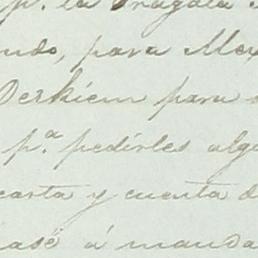 p. la Fragata
ndo, para Mex
Derkiem para
p.ª pedirles alg
carta y cuenta d
pasé á manda